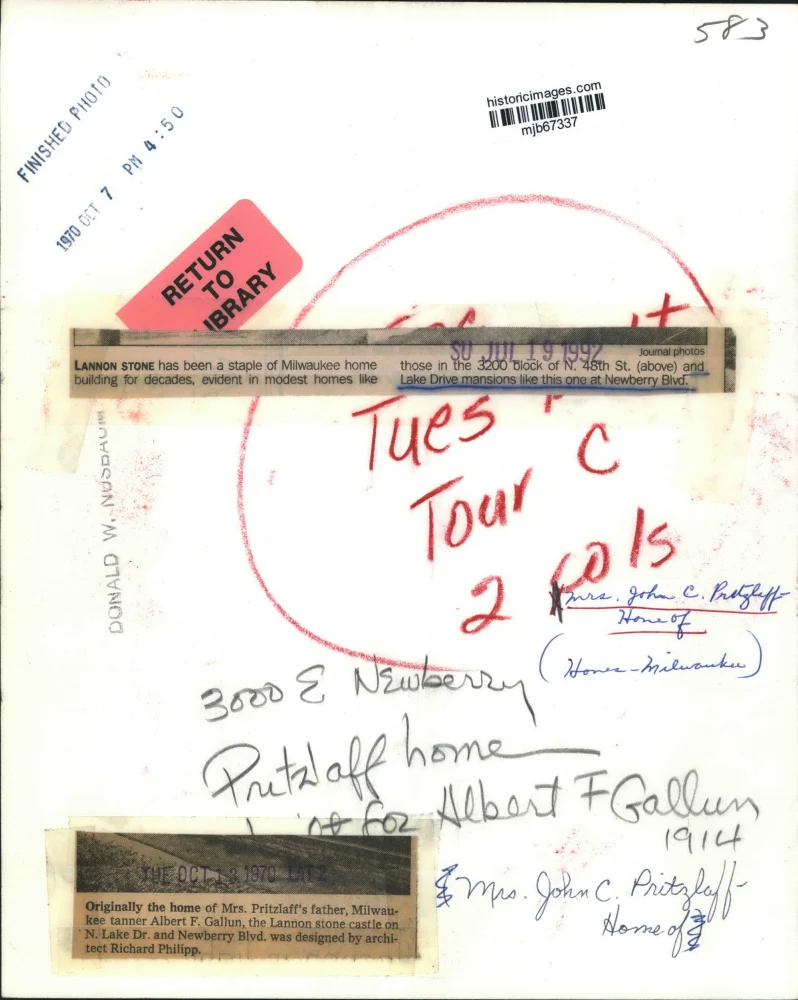 583
FINISHED PHOTO
1970 OCT 7 PM 4:50
historicimages.com
mjb67337
RETURN
TO
IBRARY
SU JUL 19 1992
Journal photos
LANNON STONE has been a staple of Milwaukee home
building for decades, evident in modest homes like
those in the 3200 block of N. 48th St. (above) and
Lake Drive mansions like this one at Newberry Blvd.
Tues
C
Tour
2 cols
DONALD W. NUSBAUM
Mrs. John C. Pritzlaff
Home of
(Homes-Milwaukee)
3000 E Newberry
Pritzlaff home
for Albert F Gallun
1914
THE OCT 13 1970 LAT2
Originally the home of Mrs. Pritzlaff's father, Milwau-
kee tanner Albert F. Gallun, the Lannon stone castle on
N. Lake Dr. and Newberry Blvd. was designed by archi-
tect Richard Philipp.
Mrs. John C. Pritzlaff-
Home of